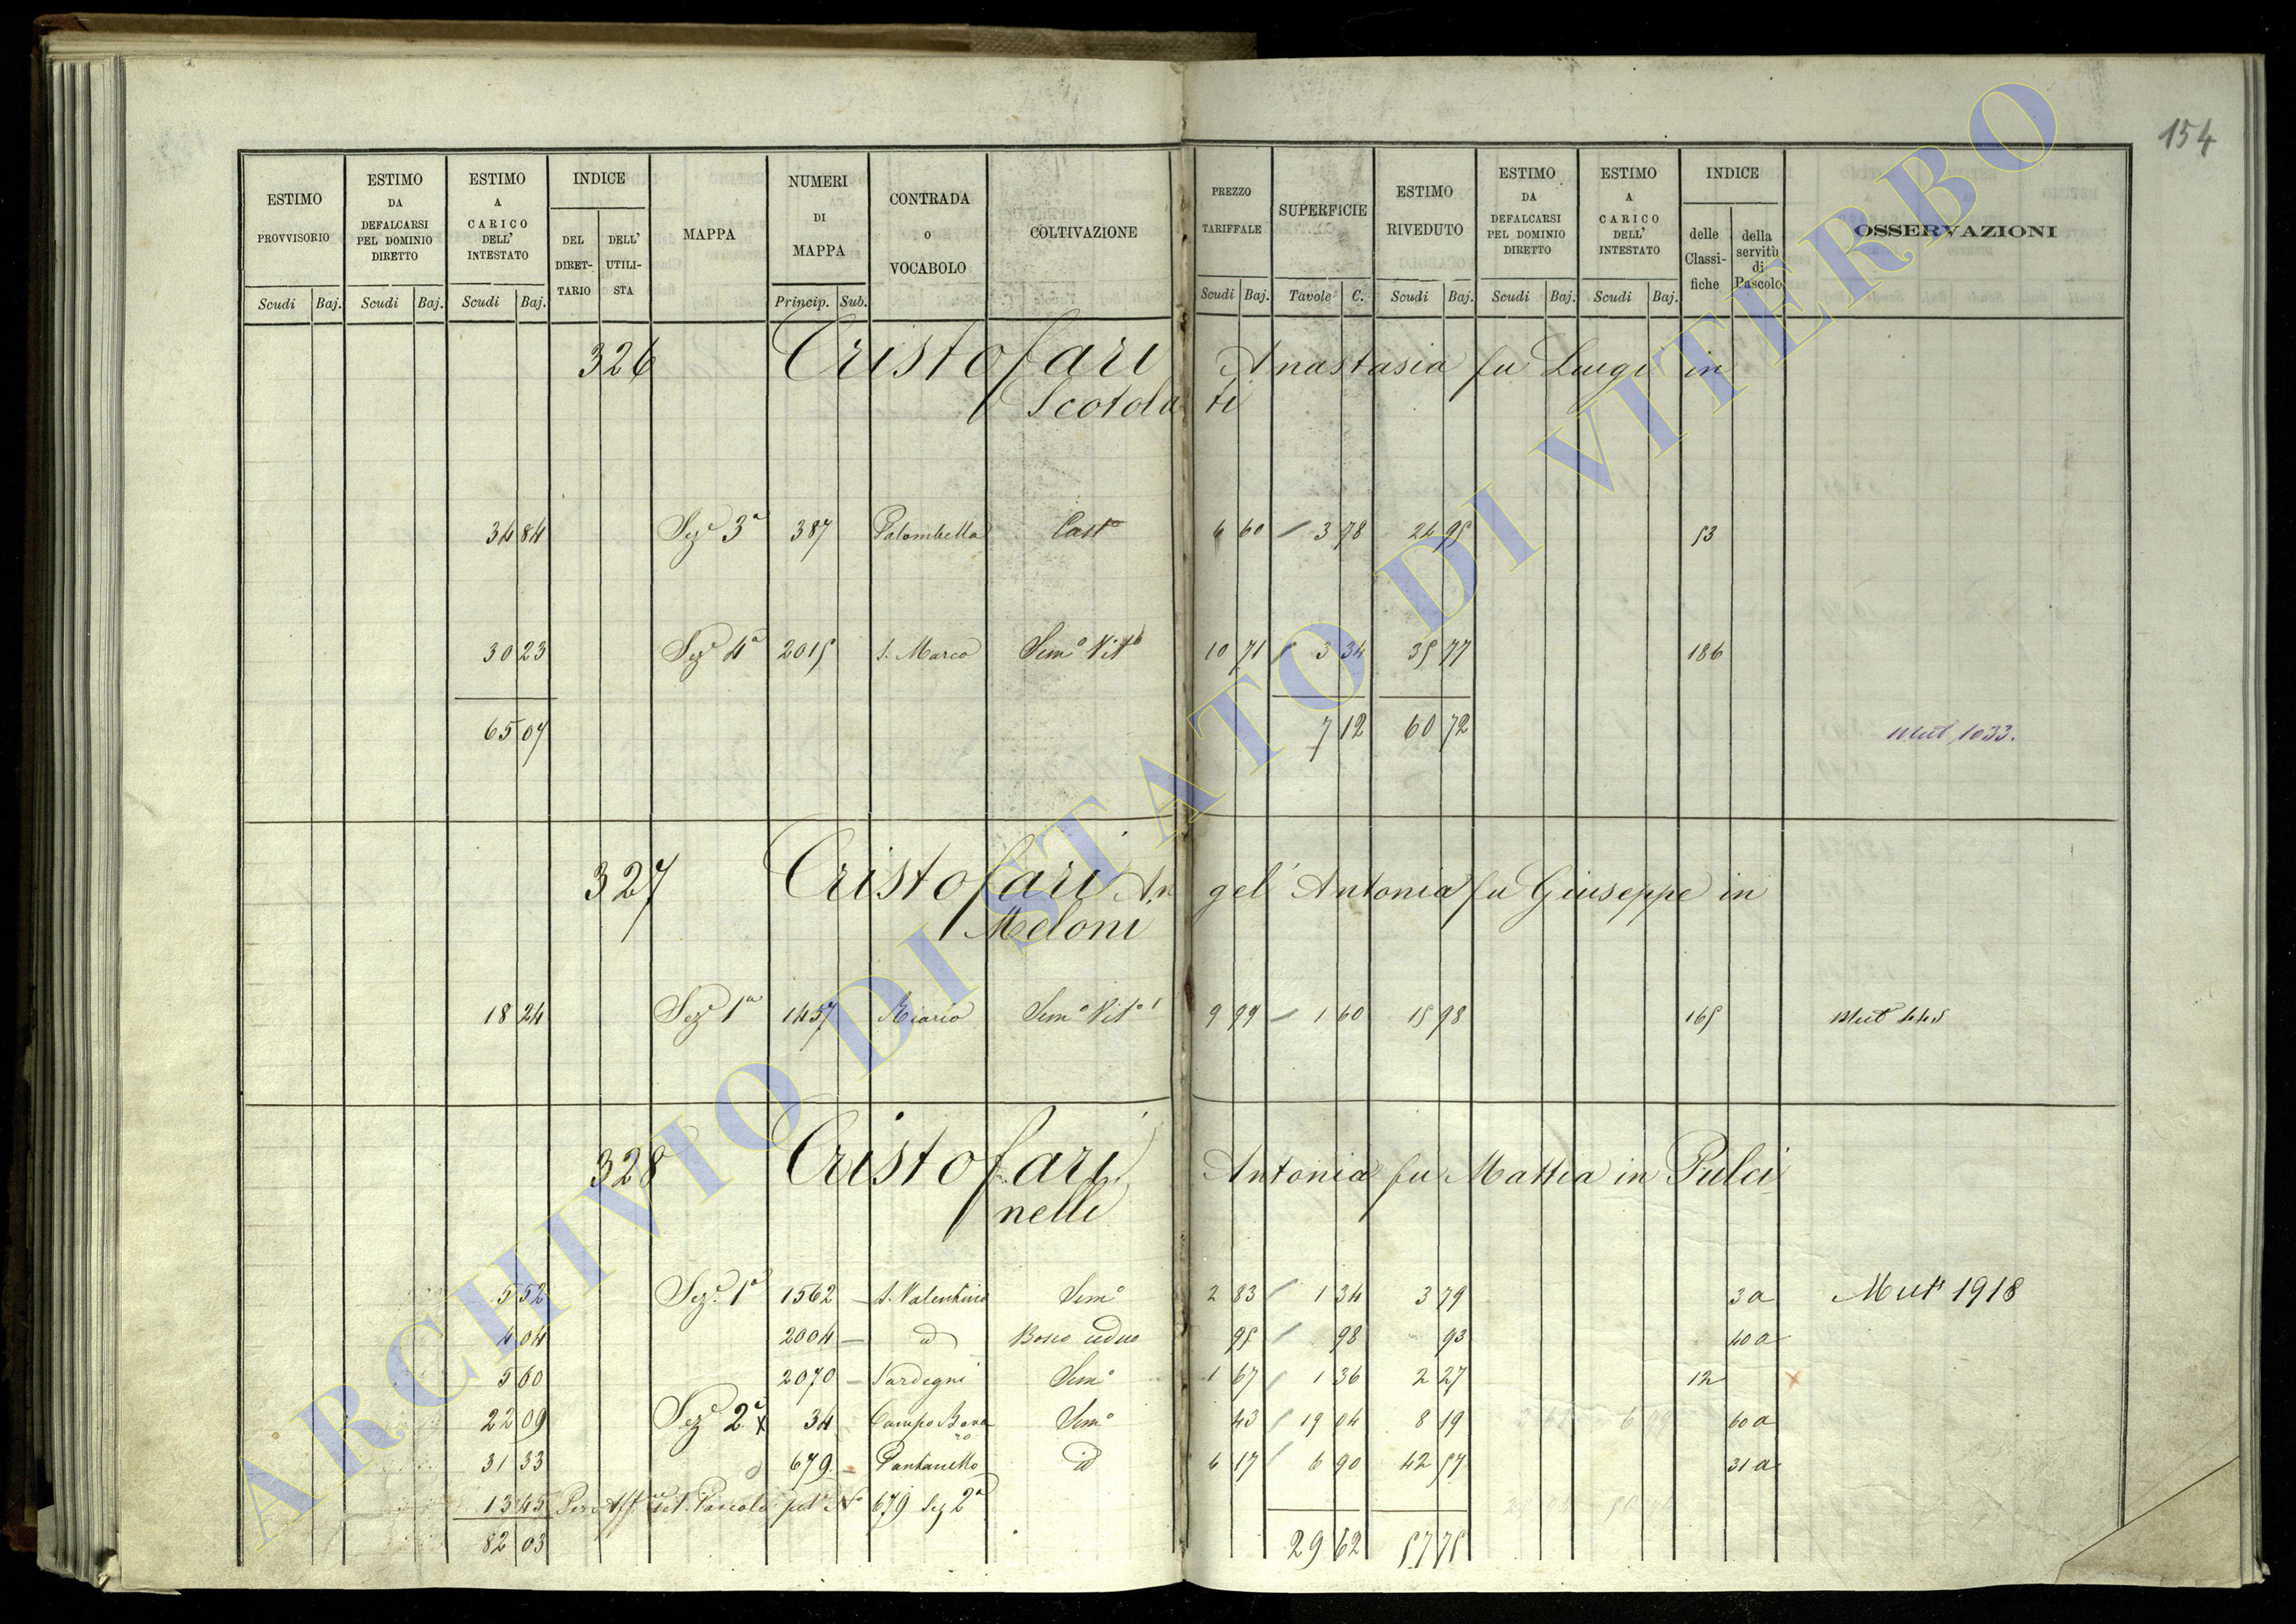 154
ESTIMO PROVVISORIO Scudi Baj.
ESTIMO DA DEFALCARSI PEL DOMINIO DIRETTO Scudi Baj.
ESTIMO A CARICO DELL' INTESTATO Scudi Baj.
INDICE DEL DIRET-TARIO DELL' UTILI-STA
MAPPA
NUMERI DI MAPPA Princip. Sub.
CONTRADA O VOCABOLO
COLTIVAZIONE
PREZZO TARIFFALE Scudi Baj.
SUPERFICIE Tavole C.
ESTIMO RIVEDUTO Scudi Baj.
ESTIMO DA DEFALCARSI PEL DOMINIO DIRETTO Scudi Baj.
ESTIMO A CARICO DELL' INTESTATO Scudi Baj.
INDICE delle Classi-fiche della servitù di Pascolo
OSSERVAZIONI
326 Cristofari Anastasia fu Luigi in
Scotolati
34 84 Sez.e 3a 387 Palombella Casto 6 60 3 78 24 95 53
30 23 Sez.e 4a 2015 S. Marco Semo Vito 10 71 3 34 35 77 186
65 07 7 12 60 72 Mut 1033.
327 Cristofari Angel' Antonia fu Giuseppe in
Meloni
18 24 Sez.e 1a 1457 Riario Semo Vito 9 99 1 60 15 98 165 Mut 445
328 Cristofari Antonia fu Mattia in Pulci
nelli
5 52 Sez.e 1a 1562 S. Valentino Semo 2 83 1 34 3 79 3a Mut 1918
4 04 2004 id Bosco ceduo 95 98 93 40a
5 60 2070 Sardegni Semo 1 67 1 36 2 27 12
22 09 Sez.e 2a 34 Campo Bovaro Semo 43 19 04 8 19 60a
31 33 679 Pantanello id 6 17 6 90 42 57 31a
13 45 Per Aff.ne del Pascolo sul No 679 Sez 2a
82 03 29 62 57 75
ARCHIVIO DI STATO DI VITERBO